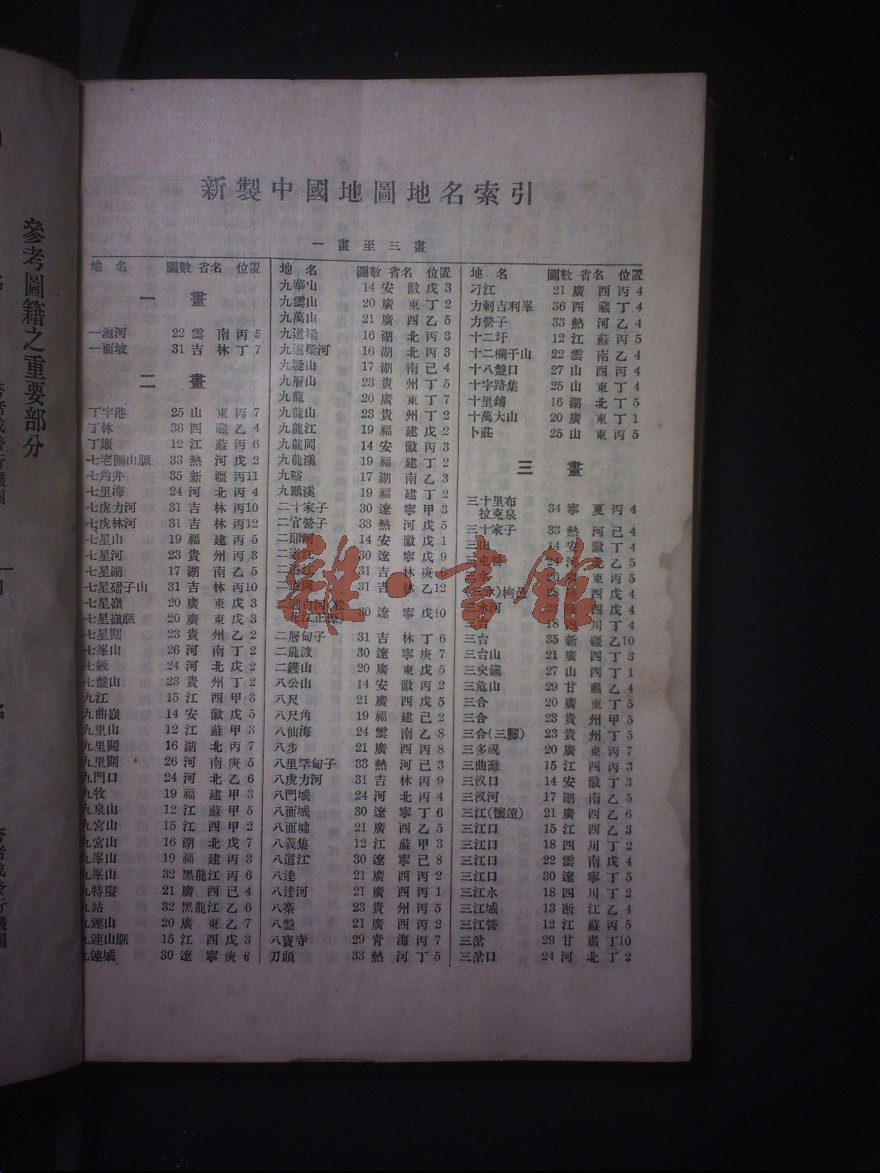 參考圖籍之重要部分
新製中國地圖地名索引
一畫至三畫
地名 圖數 省名 位置
一畫
一泡河 22 雲南 丙5
一面坡 31 吉林 丁7
二畫
丁字港 25 山東 丙7
丁林 36 西藏 乙4
丁堰 12 江蘇 丙6
七老圖山脈 33 熱河 戊2
七角井 35 新疆 丙11
七里海 24 河北 丙4
七虎力河 31 吉林 丙10
七虎林河 31 吉林 丙12
七星山 19 福建 丙5
七星河 23 貴州 丙3
七星湖 17 湖南 乙5
七星磖子山 31 吉林 丙10
七星嶺 20 廣東 戊3
七星嶺脈 20 廣東 戊3
七星關 23 貴州 乙2
七峯山 26 河南 丁2
七級 24 河北 戊2
七盤山 23 貴州 丁2
九江 15 江西 甲3
九曲嶺 14 安徽 戊5
九里山 12 江蘇 甲3
九里關 16 湖北 丙7
九里關 26 河南 庚5
九門口 24 河北 乙6
九牧 19 福建 甲3
九泉山 12 江蘇 甲5
九宮山 15 江西 甲2
九宮山 16 湖北 戊7
九峯山 19 福建 丙3
九峯山 32 黑龍江 丙6
九特隘 21 廣西 己4
九站 32 黑龍江 乙6
九連山 20 廣東 乙7
九連山脈 15 江西 戊3
九連城 30 遼寧 庚6
地名 圖數 省名 位置
九華山 14 安徽 戊3
九雲山 20 廣東 丁2
九萬山 21 廣西 乙5
九道梁 16 湖北 丙3
九道梁河 16 湖北 丙3
九嶷山 17 湖南 己4
九層山 23 貴州 丁5
九龍 20 廣東 丁7
九龍山 23 貴州 丁2
九龍江 19 福建 戊2
九龍岡 14 安徽 丙3
九龍溪 19 福建 丁2
九谿 17 湖南 乙3
九鵬溪 19 福建 丁2
二十家子 30 遼寧 甲3
二官營子 33 熱河 戊5
二郎河 14 安徽 戊1
二道江 30 遼寧 戊9
二道江 31 吉林 庚
二道岡 31 吉林 乙12
30 遼寧 戊10
二層甸子 31 吉林 丁6
二龍渡 30 遼寧 庚7
二鑊山 20 廣東 戊5
八公山 14 安徽 丙2
八尺 21 廣西 戊5
八尺角 19 福建 已2
八仙海 24 雲南 乙8
八步 21 廣西 丙8
八里罕甸子 33 熱河 已3
八虎力河 31 吉林 丙9
八門城 24 河北 丙4
八面城 30 遼寧 丁6
八面墟 21 廣西 乙5
八義集 12 江蘇 甲3
八道江 30 遼寧 已8
八達 21 廣西 丙2
八達河 21 廣西 丙1
八寨 23 貴州 丙5
八盤 21 廣西 丙2
八寶寺 29 青海 丙7
刀頭 33 熱河 丁5
地名 圖數 省名 位置
刁江 21 廣西 丙4
力刺吉利峯 36 西藏 丁4
力營子 33 熱河 乙4
十二圩 12 江蘇 丙5
十二欄干山 22 雲南 乙4
十八盤口 27 山西 丙4
十字路集 25 山東 丁4
十里鋪 16 湖北 丁5
十萬大山 20 廣東 丁1
卜莊 25 山東 丙5
三畫
三十里布
拉克泉 34 寧夏 丙4
三十家子 33 熱河 己4
三山 14 安徽 丁4
三台 18 四川 丁4
三台 35 新疆 乙10
三台山 21 廣西 丁3
三交鎮 27 山西 丁1
三危山 29 甘肅 乙4
三合 20 廣東 丁5
三合 23 貴州 甲5
三合(三腳) 23 貴州 丁5
三多祝 20 廣東 丙7
三曲灘 15 江西 丙3
三汊口 14 安徽 丁3
三汊河 17 湖南 乙5
三江(懷遠) 21 廣西 乙6
三江口 15 江西 乙3
三江口 18 四川 丁2
三江口 22 雲南 戊4
三江口 30 遼寧 丁5
三江水 18 四川 丁2
三江城 13 浙江 乙4
三江營 12 江蘇 丙5
三岔 29 甘肅 丁10
三岔口 24 河北 丁2
雜·書館